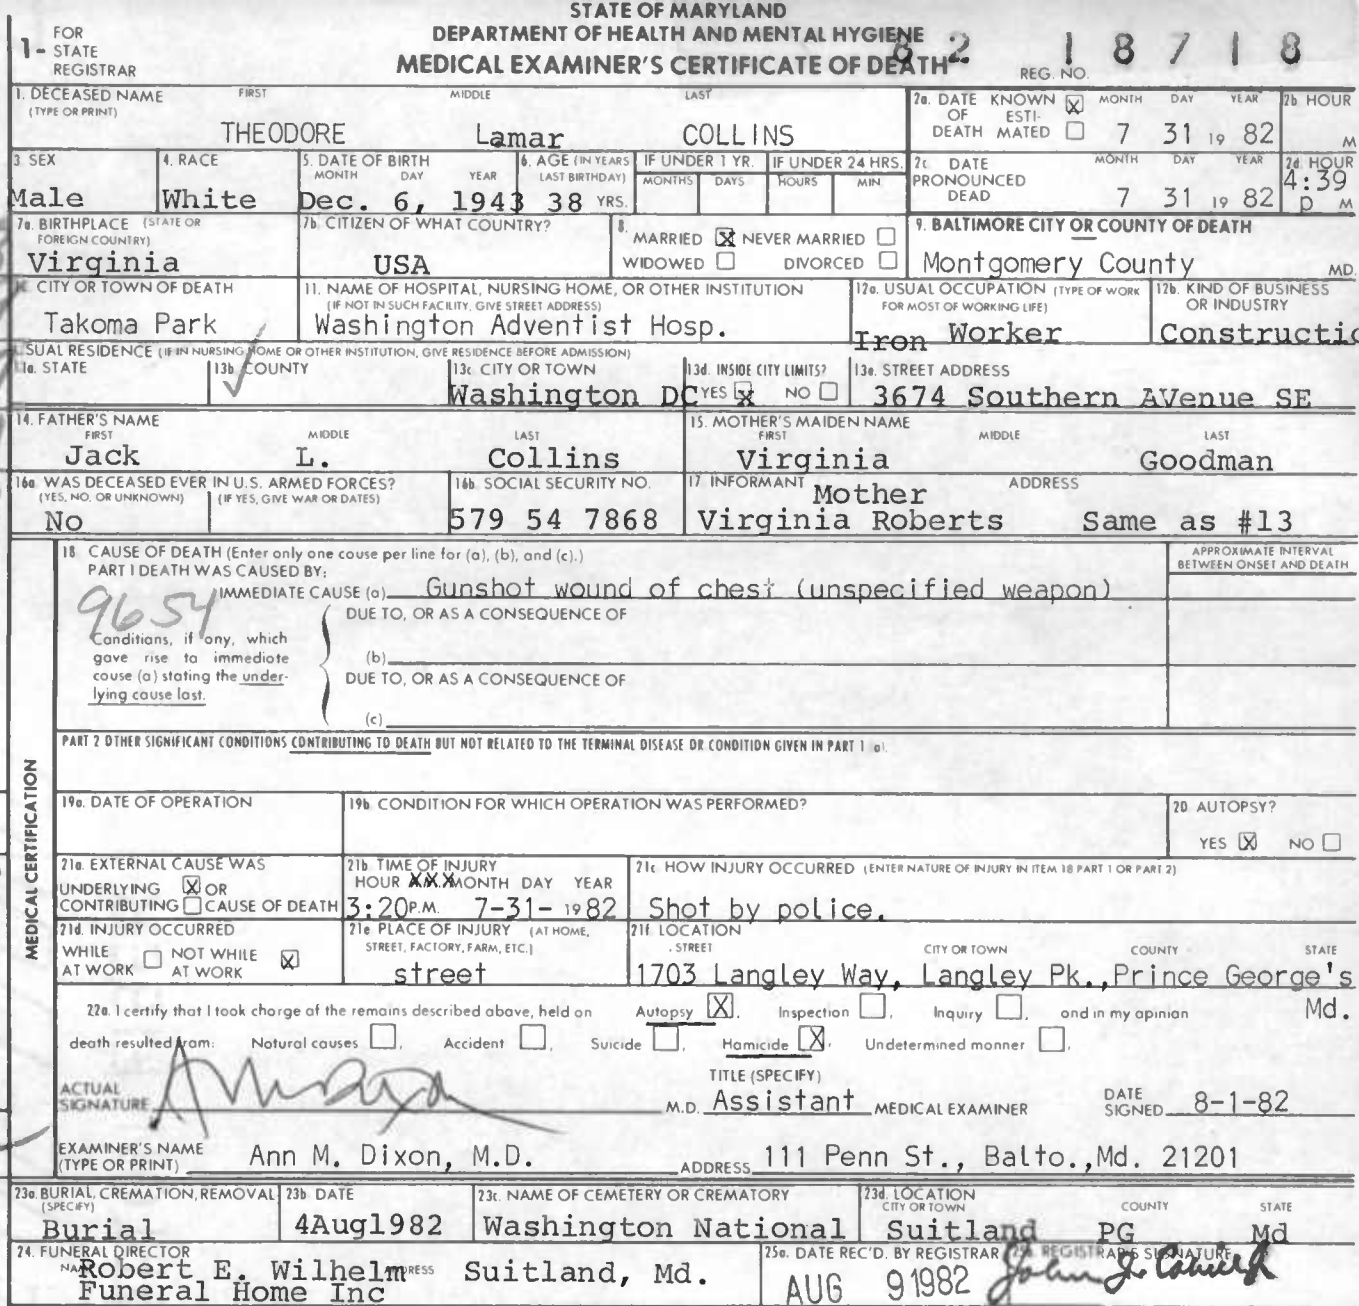 STATE OF MARYLAND
DEPARTMENT OF HEALTH AND MENTAL HYGIENE
MEDICAL EXAMINER'S CERTIFICATE OF DEATH
1- FOR STATE REGISTRAR
REG. NO. 82 18718
1. DECEASED NAME (TYPE OR PRINT) FIRST MIDDLE LAST
THEODORE Lamar COLLINS
2a. DATE OF DEATH KNOWN X ESTIMATED MONTH DAY YEAR
7 31 19 82
2b. HOUR M
3. SEX Male
4. RACE White
5. DATE OF BIRTH MONTH DAY YEAR
Dec. 6, 1943
6. AGE (IN YEARS LAST BIRTHDAY) 38 YRS.
IF UNDER 1 YR. MONTHS DAYS
IF UNDER 24 HRS. HOURS MIN.
2c. DATE PRONOUNCED DEAD MONTH DAY YEAR
7 31 19 82
2d. HOUR 4:39 p M
7a. BIRTHPLACE (STATE OR FOREIGN COUNTRY)
Virginia
7b. CITIZEN OF WHAT COUNTRY?
USA
8. MARRIED X NEVER MARRIED
WIDOWED DIVORCED
9. BALTIMORE CITY OR COUNTY OF DEATH
Montgomery County MD.
CITY OR TOWN OF DEATH
Takoma Park
11. NAME OF HOSPITAL, NURSING HOME, OR OTHER INSTITUTION
(IF NOT IN SUCH FACILITY, GIVE STREET ADDRESS)
Washington Adventist Hosp.
12a. USUAL OCCUPATION (TYPE OF WORK FOR MOST OF WORKING LIFE)
Iron Worker
12b. KIND OF BUSINESS OR INDUSTRY
Constructio
USUAL RESIDENCE (IF IN NURSING HOME OR OTHER INSTITUTION, GIVE RESIDENCE BEFORE ADMISSION)
13a. STATE
13b. COUNTY
13c. CITY OR TOWN
Washington DC
13d. INSIDE CITY LIMITS?
YES X NO
13e. STREET ADDRESS
3674 Southern AVenue SE
14. FATHER'S NAME
FIRST MIDDLE LAST
Jack L. Collins
15. MOTHER'S MAIDEN NAME
FIRST MIDDLE LAST
Virginia Goodman
16a. WAS DECEASED EVER IN U.S. ARMED FORCES?
(YES, NO, OR UNKNOWN) (IF YES, GIVE WAR OR DATES)
No
16b. SOCIAL SECURITY NO.
579 54 7868
17. INFORMANT ADDRESS
Mother
Virginia Roberts Same as #13
MEDICAL CERTIFICATION
18 CAUSE OF DEATH (Enter only one cause per line for (a), (b), and (c).)
PART I DEATH WAS CAUSED BY:
APPROXIMATE INTERVAL BETWEEN ONSET AND DEATH
IMMEDIATE CAUSE (a) Gunshot wound of chest (unspecified weapon)
9654
DUE TO, OR AS A CONSEQUENCE OF
Conditions, if any, which gave rise to immediate cause (a) stating the underlying cause last.
(b)
DUE TO, OR AS A CONSEQUENCE OF
(c)
PART 2 OTHER SIGNIFICANT CONDITIONS CONTRIBUTING TO DEATH BUT NOT RELATED TO THE TERMINAL DISEASE OR CONDITION GIVEN IN PART 1 (a).
19a. DATE OF OPERATION
19b. CONDITION FOR WHICH OPERATION WAS PERFORMED?
20 AUTOPSY?
YES X NO
21a. EXTERNAL CAUSE WAS
UNDERLYING X OR
CONTRIBUTING CAUSE OF DEATH
21b. TIME OF INJURY
HOUR MONTH DAY YEAR
3:20 P.M. 7-31- 1982
21c. HOW INJURY OCCURRED (ENTER NATURE OF INJURY IN ITEM 18 PART 1 OR PART 2)
Shot by police.
21d. INJURY OCCURRED
WHILE AT WORK NOT WHILE AT WORK X
21e. PLACE OF INJURY (AT HOME, STREET, FACTORY, FARM, ETC.)
street
21f. LOCATION
STREET CITY OR TOWN COUNTY STATE
1703 Langley Way, Langley Pk., Prince George's Md.
22a. I certify that I took charge of the remains described above, held on Autopsy X, Inspection , Inquiry , and in my opinion
death resulted from: Natural causes , Accident , Suicide , Homicide X, Undetermined manner .
ACTUAL SIGNATURE
M.D.
TITLE (SPECIFY)
Assistant MEDICAL EXAMINER
DATE SIGNED 8-1-82
EXAMINER'S NAME (TYPE OR PRINT) Ann M. Dixon, M.D.
ADDRESS 111 Penn St., Balto., Md. 21201
23a. BURIAL, CREMATION, REMOVAL (SPECIFY)
Burial
23b. DATE
4Aug1982
23c. NAME OF CEMETERY OR CREMATORY
Washington National
23d. LOCATION
CITY OR TOWN COUNTY STATE
Suitland PG Md
24. FUNERAL DIRECTOR
Robert E. Wilhelm Suitland, Md.
Funeral Home Inc
25a. DATE REC'D. BY REGISTRAR
AUG 9 1982
REGISTRAR'S SIGNATURE
John J.